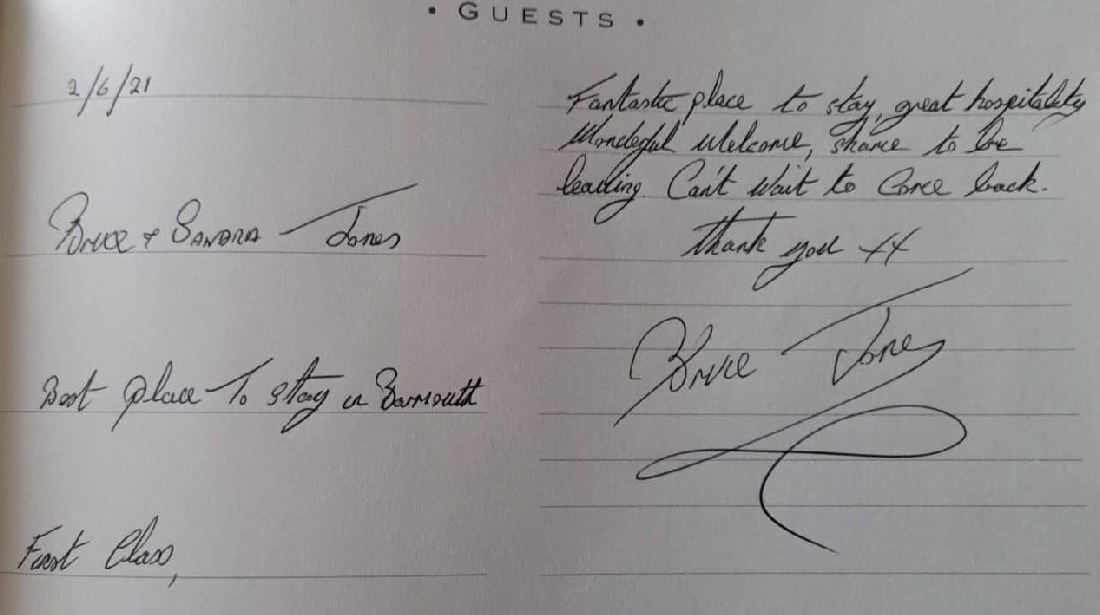 • GUESTS •
2/6/21
Bruce + Sandra Jones
Best place To stay in Barmouth
First Class,
Fantastic place to stay, great hospitality
Wonderful Welcome, shame to be
leaving. Can't wait to Come back.
thank you xx
Bruce Jones